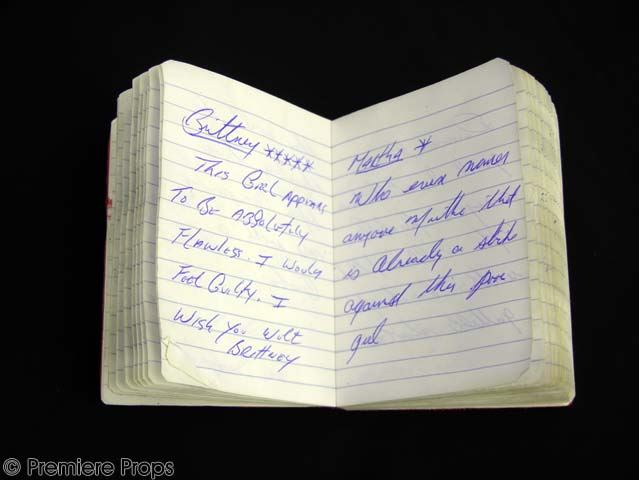 Brittney *****
This Girl Appears
To Be Absolutely
Flawless. I Would
Feel Guilty. I
Wish You Well
Brittney
Martha *
who even names
anyone Martha that
is already a strike
against this poor
girl
© Premiere Props